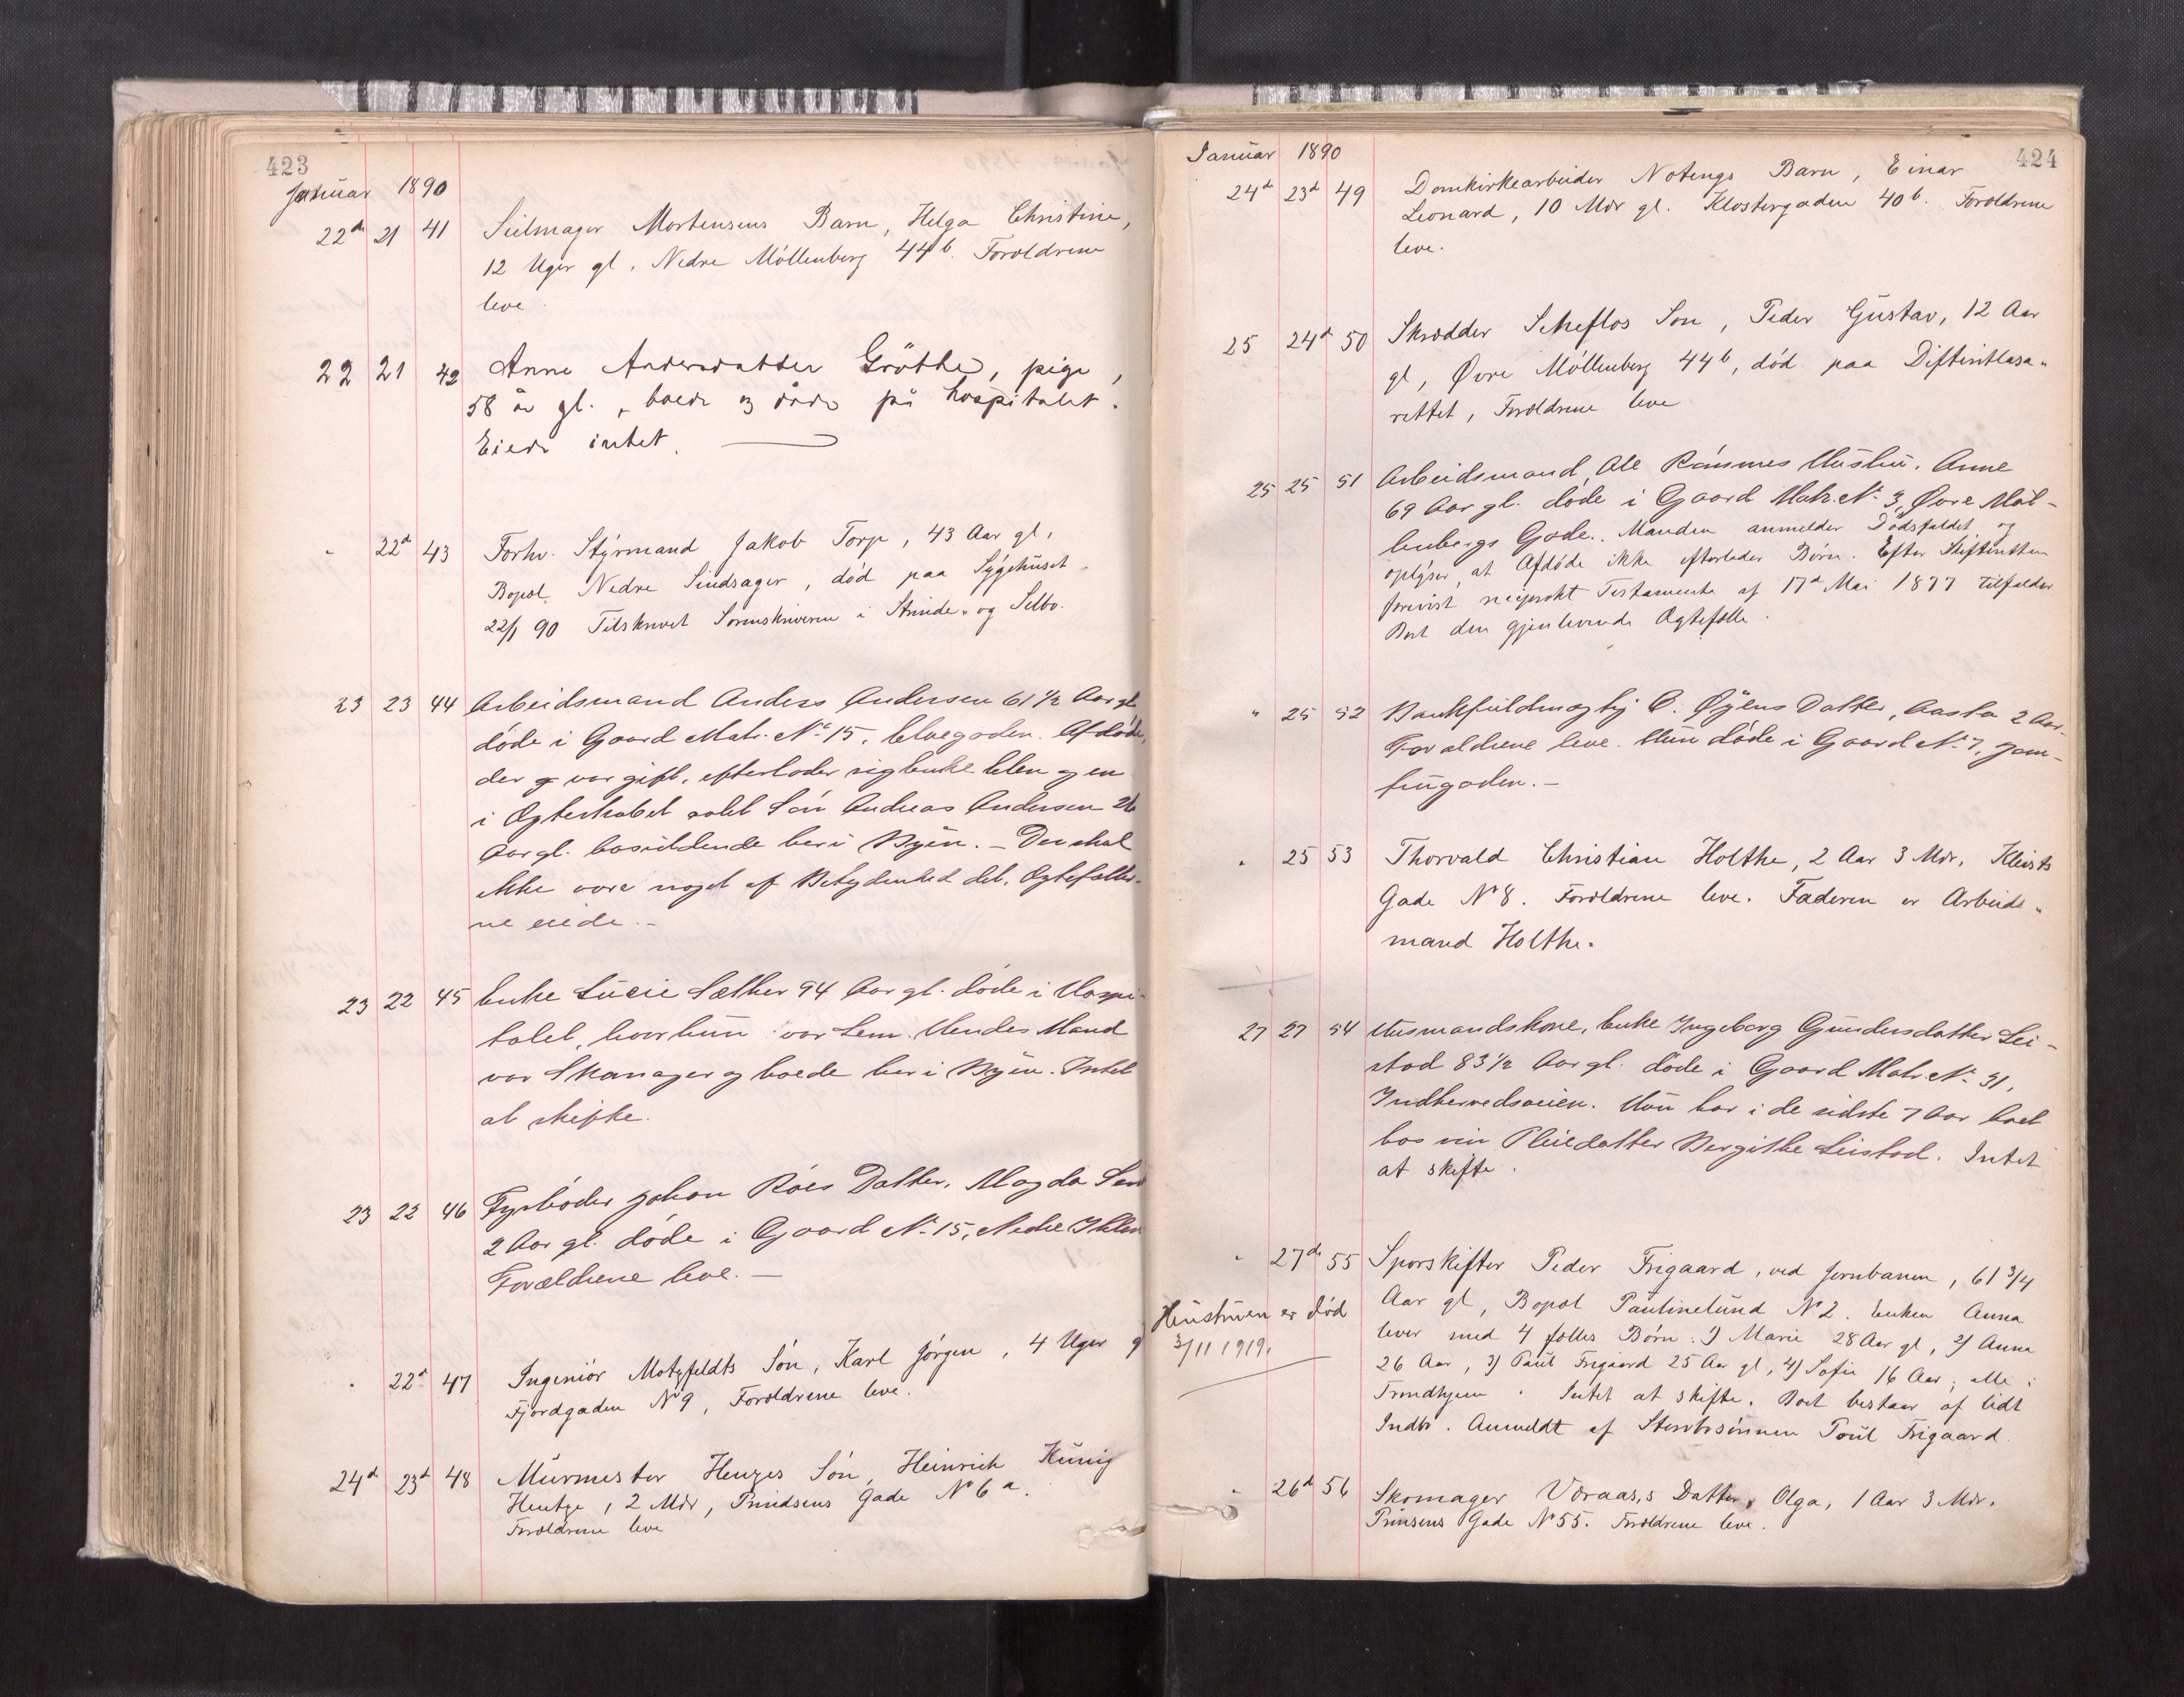 423
Januar 1890
22d 21 41 Seilmager Mortensens Barn, Helga Christine,
12 Uger gl, Nedre Möllenberg 44b. Forældrene
leve
22 21 42 Anne Andersdatter Gröthe, pige,
58 år gl., boede og døde på hospitalet.
Eiede intet.
" 22d 43 Forhv. Styrmand Jakob Torp, 43 Aar gl,
Bopæl Nedre Sindsager, død paa Sygehuset.
22/1 90 Tilskrevet Sorenskriveren i Strinde- og Selbo.
23 23 44 Arbeidsmand Anders Andersen 61 1/2 Aar gl
døde i Gaard Matr. No 15, Elvegaden. Afdøde,
der var gift, efterlader sig Enke Elen og en
i Ægteskabet avlet Søn Andreas Andersen 26
Aar gl. bosiddende her i Byen. – Der skal
ikke være noget af Betydenhed det, Ægtefælle-
ne eiede. –
23 22 45 Enke Lucie Sæther 94 Aar gl. døde i Hospi-
talet, hvor hun var Lem. Hendes Mand
var Skomager og boede her i Byen. Intet
at skifte.
23 22 46 Fyrbøder Johan Röes Datter, Magda
2 Aar gl. døde i Gaard No 15, Nedre Ihlen
Forældrene leve. –
" 22d 47 Ingeniør Motzfeldts Søn, Karl Jørgen, 4 Uger g
Fjordgaden No 9, Forældrene leve.
24d 23d 48 Murmester Hentzes Søn, Heinrich Künig
Hentze, 2 Mdr, Prindsens Gade No 6a.
Forældrene leve
424
Januar 1890
24d 23d 49 Domkirkearbeider Notengs Barn, Einar
Leonard, 10 Mdr gl. Klostergaden 40b. Forældrene
leve.
25 24d 50 Skrædder Scheflos Søn, Peder Gustav, 12 Aar
gl, Øvre Möllenberg 44b, död paa Difteritlasa-
rettet, Forældrene leve
25 25 51 Arbeidsmand Ole Rönnes Hustru, Anne
69 Aar gl. døde i Gaard Matr. No 3, Øvre Møl-
lenbergs Gade. Manden anmelder Dødsfaldet og
oplyser, at Afdøde ikke efterlader Børn. Efter Skifteretten
forevist reciprokt Testamente af 17d Mai 1877 tilfalder
Boet den gjenlevende Ægtefælle.
" 25 52 Bankfuldmægtig O. Øyens Datter, Aasta 2 Aar.
Forældrene leve. Hun døde i Gaard No 7, Jom-
frugaden. –
" 25 53 Thorvald Christian Holthe, 2 Aar 3 Mdr, Kleists
Gade No 8. Forældrene leve. Faderen er Arbeids-
mand Holthe.
27 27 54 Husmandskone, Enke Ingeborg Gundersdatter Lei-
stad 83 1/2 Aar gl. døde i Gaard Matr. No 31,
Indherredsveien. Hun har i de sidste 7 Aar boet
hos sin Pleiedatter Bergithe Leistad. Intet
at skifte.
" 27d 55 Sporskifter Peder Frigaard, ved Jernbanen, 61 3/4
Aar gl, Bopæl Paulinelund No 2. Enken Anna
lever med 4 fælles Børn: 1) Marie 28 Aar gl, 2) Anna
26 Aar, 3) Paul Frigaard 25 Aar gl, 4) Sofie 16 Aar; alle i
Trondhjem. Intet at skifte. Boet bestaar af lidt
Indbo. Anmeldt af Stervbosønnen Poul Frigaard.
Hustruen er død
3/11 1919.
" 26d 56 Skomager Væraas,s Datter, Olga, 1 Aar 3 Mdr.
Prinsens Gade No 55. Forældrene leve.